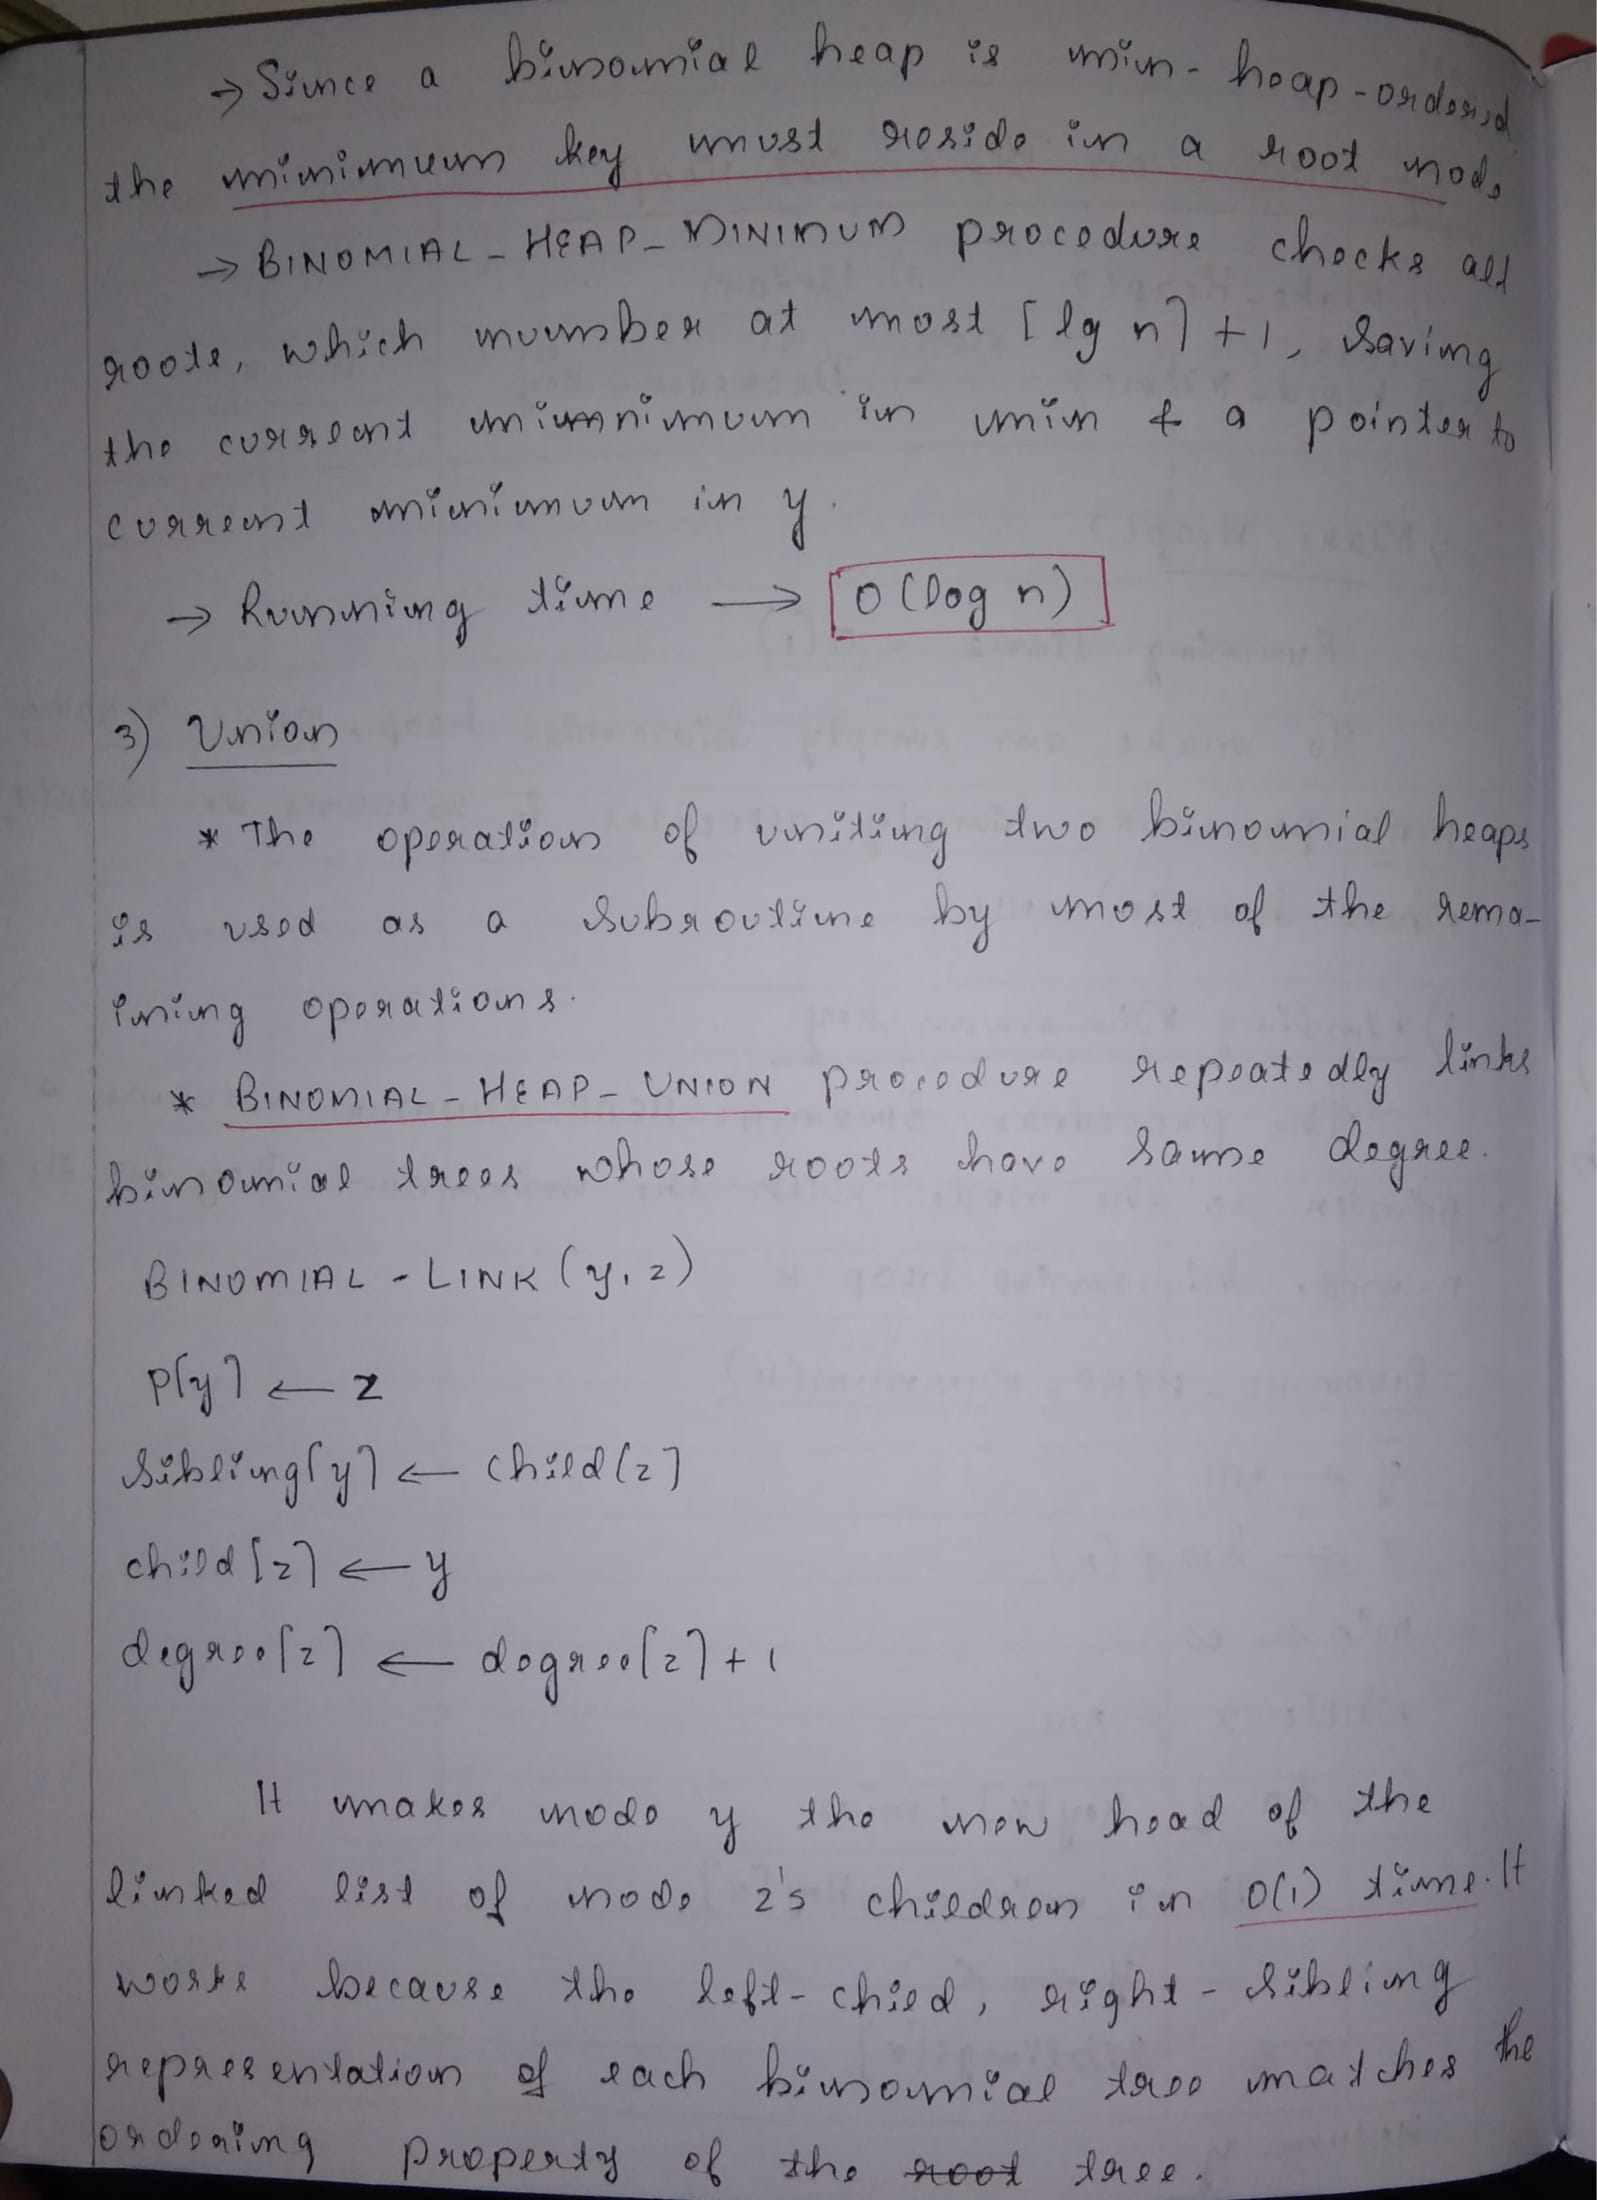 → Since a binomial heap is min-heap-ordered
the minimum key must reside in a root node
→ BINOMIAL_HEAP_MINIMUM procedure checks all
roots, which number at most ⌈lg n⌉ + 1, saving
the current minimum in min & a pointer to
current minimum in y.
→ Running time → O(log n)
3) Union
* The operation of uniting two binomial heaps
is used as a subroutine by most of the rema-
ining operations.
* BINOMIAL-HEAP-UNION procedure repeatedly links
binomial trees whose roots have same degree.
BINOMIAL-LINK(y, z)
P[y] ← z
Sibling[y] ← child[z]
child[z] ← y
degree[z] ← degree[z] + 1
It makes node y the new head of the
linked list of node z's children in O(1) time. It
works because the left-child, right-sibling
representation of each binomial tree matches the
ordering property of the root tree.